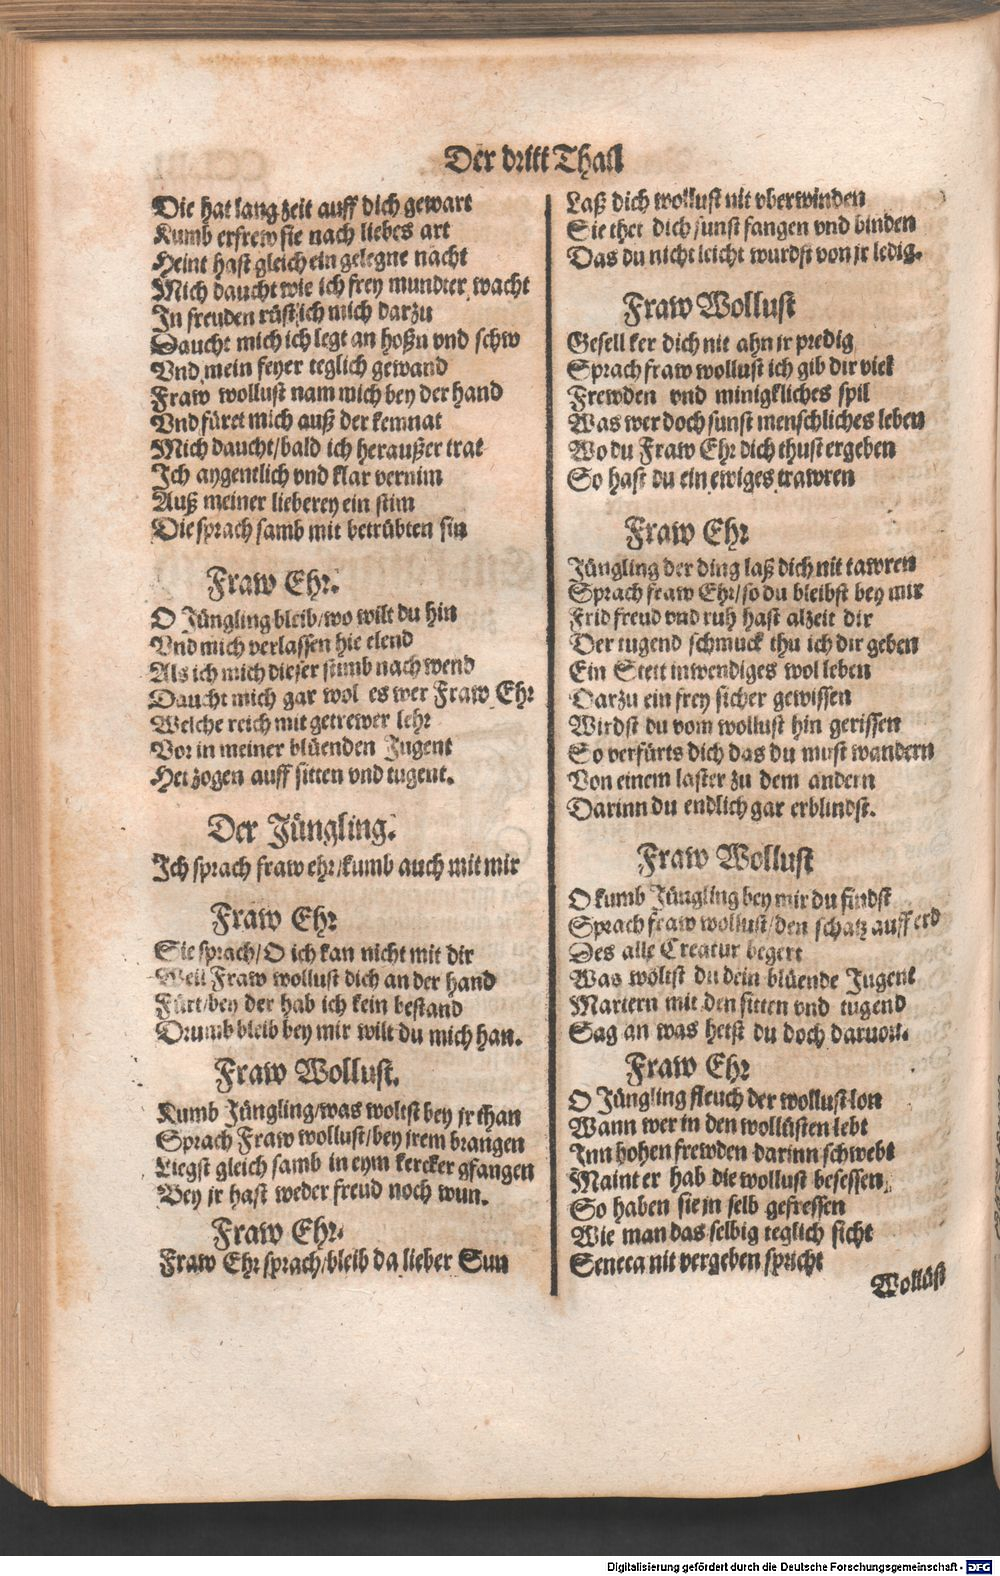 Der dritt Thail
Die hat lang zeit auff dich gewart
Kumb erfrew sie nach liebes art
Heint hast gleich ein gelegne nacht
Mich daucht wie ich frey mundter wacht
In freuden rüst ich mich darzu
Daucht mich ich legt an hoßn vnd schw
Vnd mein feyer teglich gewand
Fraw wollust nam mich bey der hand
Vnd füret mich auß der kemnat
Mich daucht/bald ich heraußer trat
Ich aygentlich vnd klar vernim
Auß meiner lieberey ein stim
Die sprach samb mit betrübten sin
Fraw Ehr.
O Jüngling bleib/wo wilt du hin
Vnd mich verlassen hie elend
Als ich mich dieser stimb nach wend
Daucht mich gar wol es wer Fraw Ehr
Welche reich mit getrewer lehr
Vor in meiner blüenden Jugent
Het zogen auff sitten vnd tugent.
Der Jüngling.
Ich sprach fraw ehr/kumb auch mit mir
Fraw Ehr
Sie sprach/O ich kan nicht mit dir
Weil Fraw wollust dich an der hand
Fürt/bey der hab ich kein bestand
Drumb bleib bey mir wilt du mich han.
Fraw Wollust.
Kumb Jüngling/was woltst bey jr than
Sprach Fraw wollust/bey jrem brangen
Liegst gleich samb in eym kercker gfangen
Bey jr hast weder freud noch wun.
Fraw Ehr.
Fraw Ehr sprach/bleib da lieber Sun
Laß dich wollust nit vberwinden
Sie thet dich sunst fangen vnd binden
Das du nicht leicht wurdst von jr ledig.
Fraw Wollust
Gesell ker dich nit ahn jr predig
Sprach fraw wollust ich gib dir viel
Frewden vnd minigkliches spil
Was wer doch sunst menschliches leben
Wo du Fraw Ehr dich thust ergeben
So hast du ein ewiges trawren
Fraw Ehr
Jüngling der ding laß dich nit tawren
Sprach fraw Ehr/so du bleibst bey mir
Frid freud vnd ruh hast alzeit dir
Der tugend schmuck thu ich dir geben
Ein Stett inwendiges wol leben
Darzu ein frey sicher gewissen
Wirdst du vom wollust hin gerissen
So verfürts dich das du must wandern
Von einem laster zu dem andern
Darinn du endlich gar erblindst.
Fraw Wollust
O kumb Jüngling bey mir du findst
Sprach fraw wollust/den schatz auff erd
Des alle Creatur begert
Was wöltst du dein blüende Jugent
Martern mit den sitten vnd tugend
Sag an was hetst du doch daruon.
Fraw Ehr
O Jüngling fleuch der wollust lon
Wann wer in den wollüsten lebt
Inn hohen frewden darinn schwebt
Maint er hab die wollust besessen
So haben sie jn selb gefressen
Wie man das selbig teglich sicht
Seneca nit vergeben spricht
Wollüst
Digitalisierung gefördert durch die Deutsche Forschungsgemeinschaft - DFG